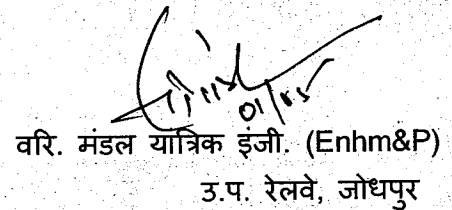 01/05
वरि. मंडल यांत्रिक इंजी. (Enhm&P)
उ.प. रेलवे, जोधपुर